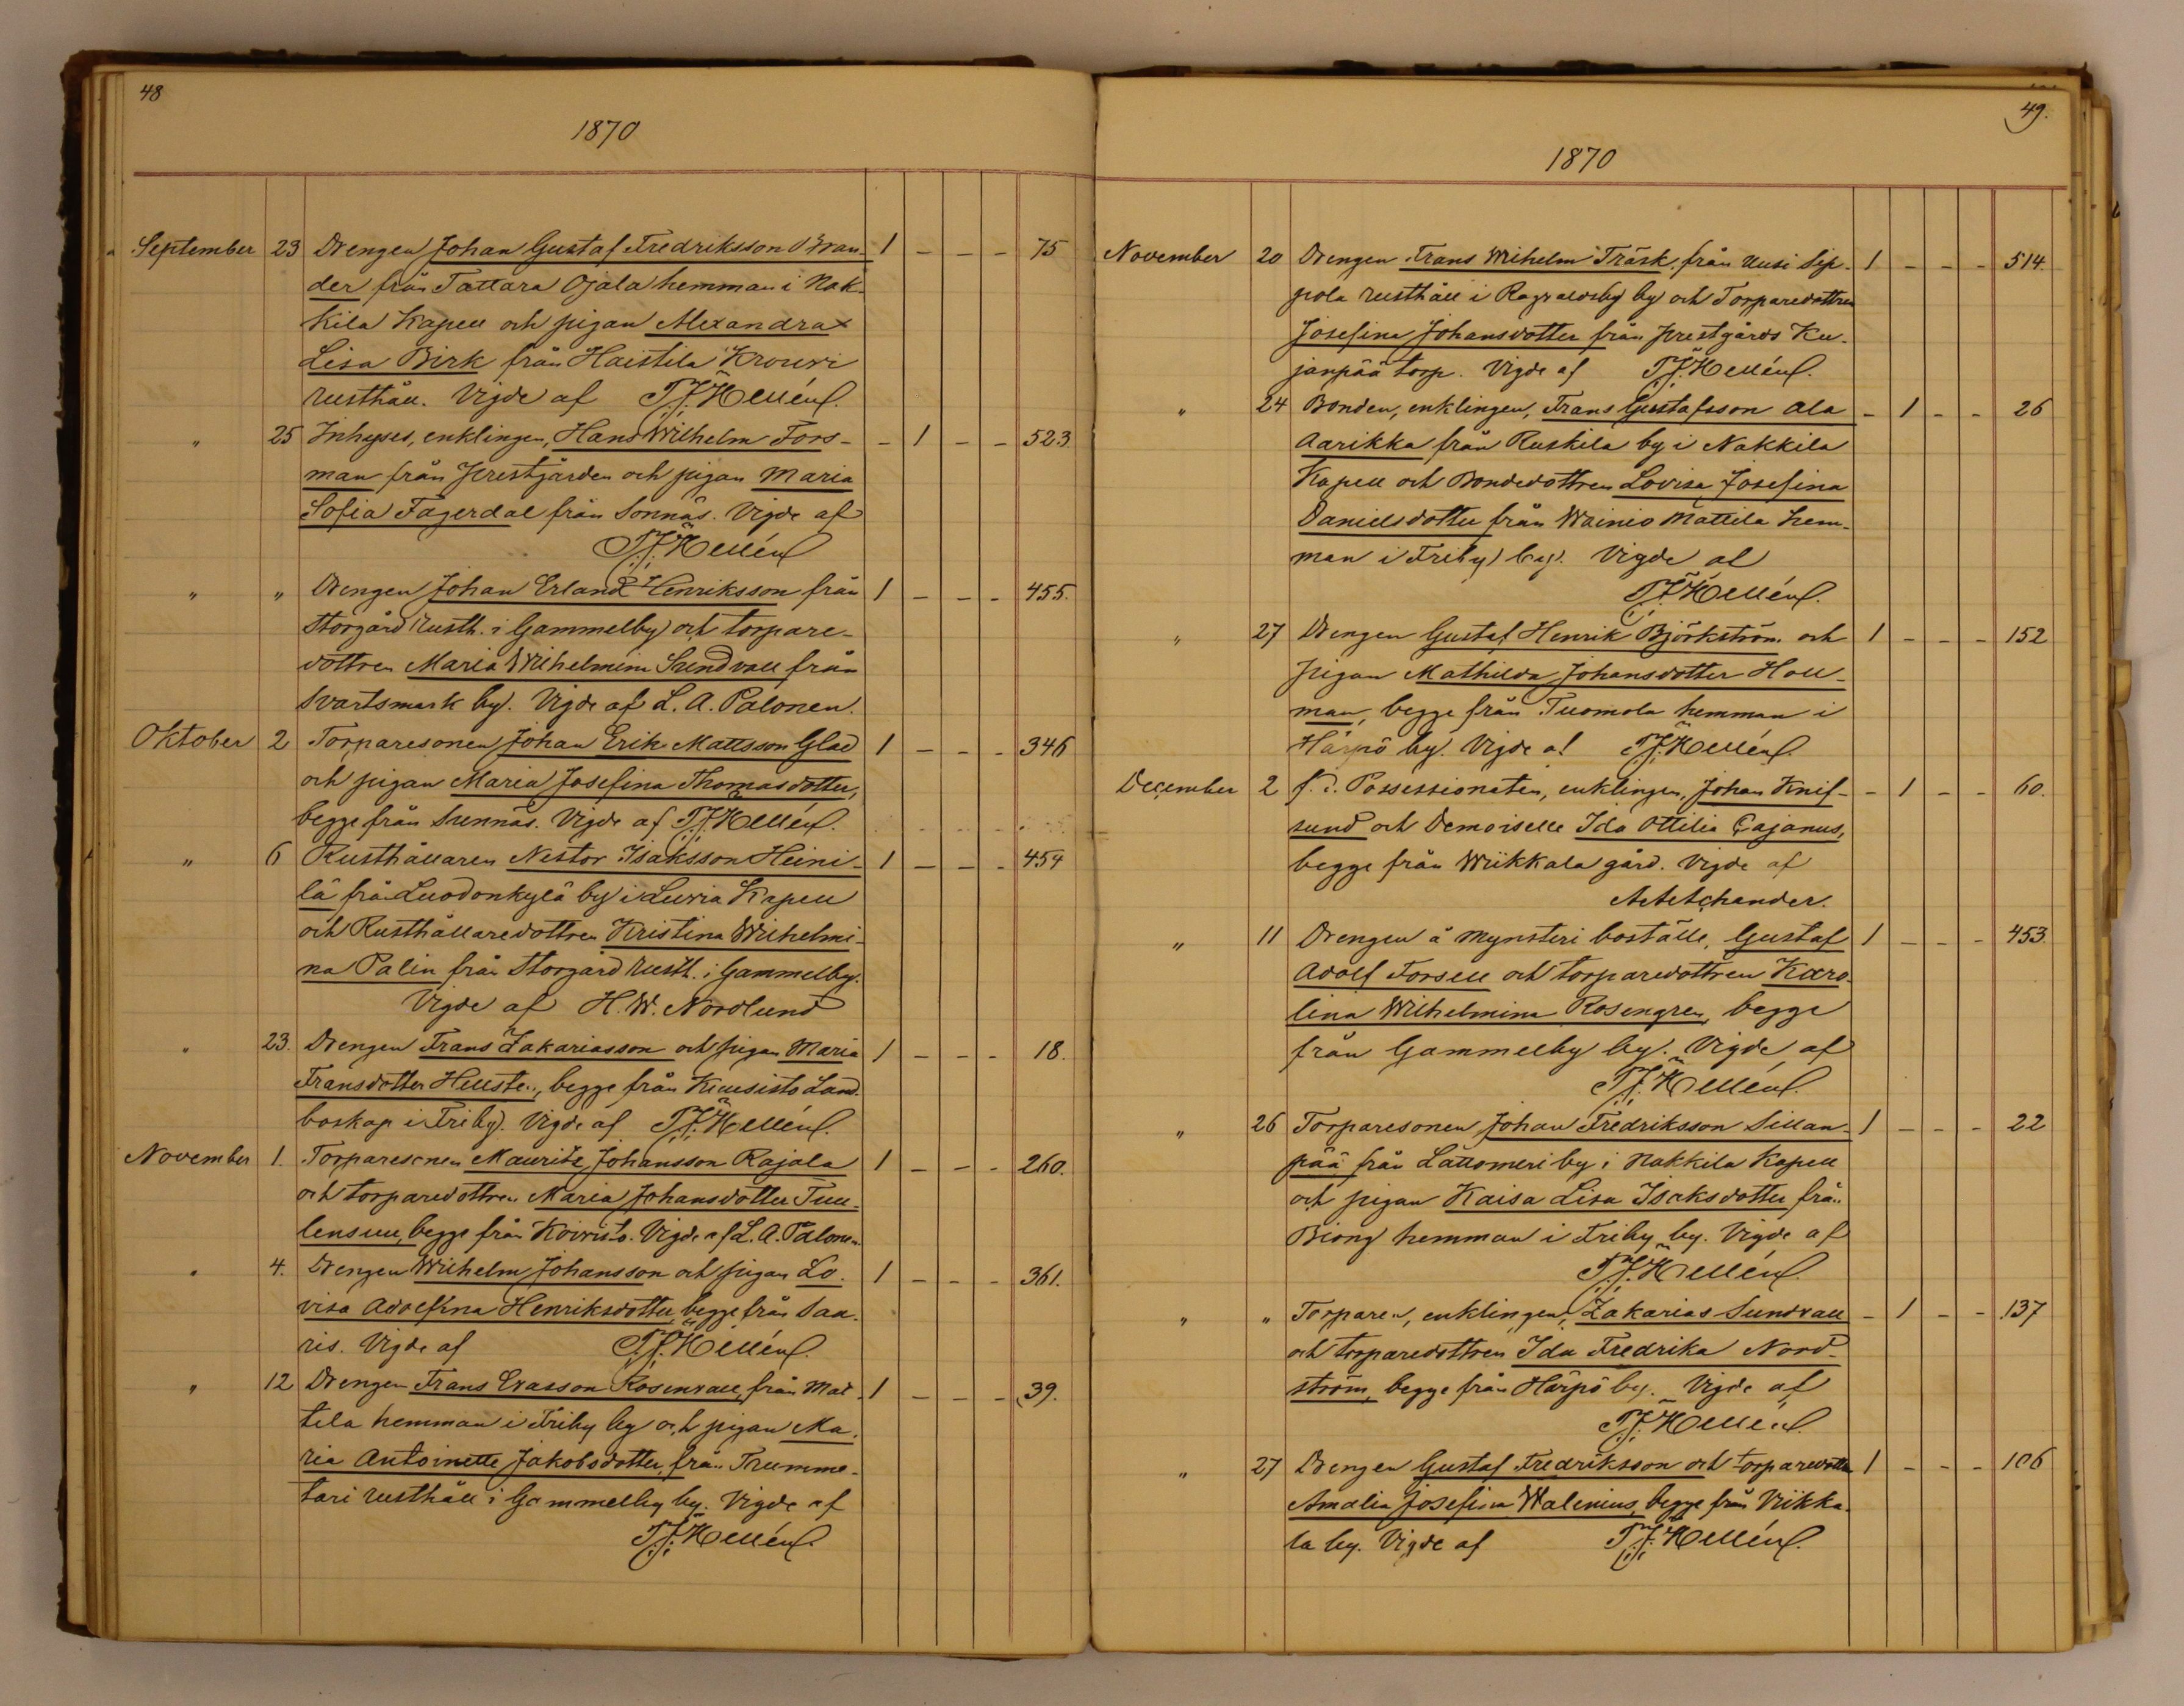 48
1870
September 23 Drengen Johan Gustaf Fredriksson Bran- 1 - - - 75
der från Tattara Ojala hemman i Nak-
kila Kapell och pigan Alexandra
Lisa Birk från Haistila Krouvi
rusthåll. Vigde af T.J. Hellén.
" 25 Inhyses, enklingen, Hans Wilhelm Fors- - 1 - - 523.
man från Prestgården och pigan Maria
Sofia Fagerdal från Sonnäs. Vigde af
T.J. Hellén
" " Drengen Johan Erland Henriksson från 1 - - - 455.
Storgård rusth. i Gammelby och torpare-
dottren Maria Wilhelmina Sundvall från
Svartsmark by. Vigde af L. A. Palonen.
Oktober 2 Torparesonen Johan Erik Mattsson Glad 1 - - - 346
och pigan Maria Josefina Thomasdotter,
begge från Sunnäs. Vigde af T.J. Hellén.
" 6 Rusthållaren Nestor Isaksson Heini- 1 - - - 454
lä från Luodonkylä by i Luvia Kapell
och Rusthållaredottren Kristina Wilhelmi-
na Palin från Storgård rusth. i Gammelby.
Vigde af H. W. Nordlund
" 23. Drengen Frans Zakariasson och pigan Maria 1 - - - 18.
Fransdotter Hellsten, begge från Kuusisto Land-
boskap i Friby. Vigde af T.J. Hellén.
November 1. Torparesonen Maurits Johansson Rajala 1 - - - 260.
och torparedottren Maria Johansdotter Tuu-
lensuu, begge från Koivisto. Vigde af L. A. Palonen.
" 4. Drengen Wilhelm Johansson och pigan Lo- 1 - - - 361.
visa Adolfina Henriksdotter begge från Saa-
ris. Vigde af T.J. Hellén.
" 12 Drengen Frans Evasson Rosenvall, från Mat- 1 - - - 39.
tila hemman i Friby by och pigan Ma-
ria Antoinette Jakobsdotter, från Trumme-
tari rusthåll i Gammelby by. Vigde af
T.J. Hellén.
49.
1870
November 20 Drengen Frans Wilhelm Träsk, från Uusi Sip- 1 - - - 514.
pola rusthåll i Ragvaldsby by och Torparedottren
Josefina Johansdotter från Prestgårds Ku-
janpää torp. Vigde af T.J. Hellén.
" 24 Bonden, enklingen, Frans Gustafsson Ala - 1 - - 26
Aarikka från Ruskila by i Nakkila
Kapell och Bondedottren Lovisa Josefina
Danielsdotter från Wainio Mattila hem-
man i Friby by. Vigde af
T.J. Hellén.
" 27 Drengen Gustaf Henrik Björkström och 1 - - - 152
pigan Mathilda Johansdotter Holl-
man, begge från Tuomola hemman i
Härpö by. Vigde af T.J. Hellén.
December 2 f. d. Possessionaten, enklingen, Johan Knif- - 1 - - 60.
sund och Demoiselle Ida Ottilia Cajanus,
begge från Wiikkala gård. Vigde af
" 11 Drengen å Mynsteri boställe, Gustaf 1 - - - 453.
Adolf Forsell och torparedottren Karo-
lina Wilhelmina Rosengren, begge
från Gammelby by. Vigde af
T.J. Hellén.
" 26 Torparesonen Johan Fredriksson Sillan- 1 - - - 22
pää från Lattomeri by i Nakkila Kapell
och pigan Kaisa Lisa Isaksdotter från
Biong hemman i Friby by. Vigde af
T.J. Hellén.
" " Torparen, enklingen, Zakarias Sundvall - 1 - - 137
och torparedottren Ida Fredrika Nord-
ström, begge från Härpö by. Vigde af
T.J. Hellén.
" 27 Drengen Gustaf Fredriksson och torparedottren 1 - - - 106
Amalia Josefina Walenius, begge från Viikka-
la by. Vigde af T.J. Hellén.